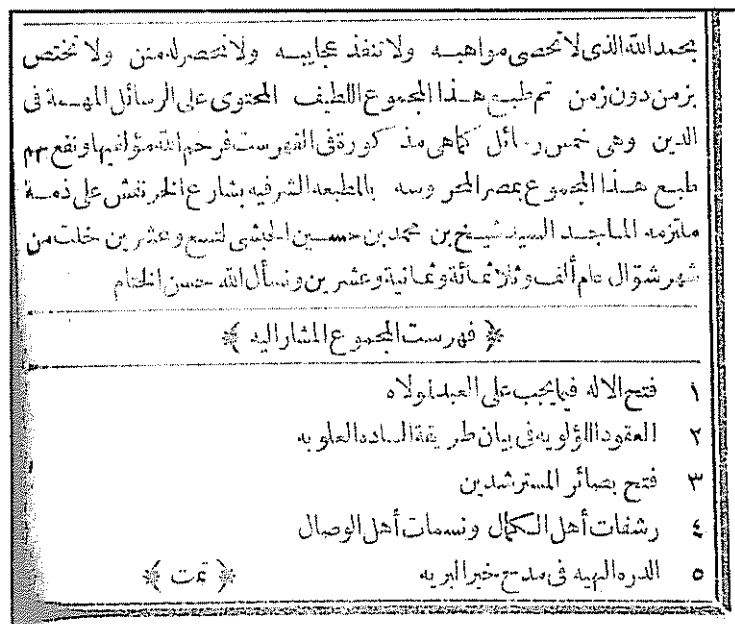 بحمد الله الذى لا تحصى مواهبه ولا تنفذ عجايبه ولا تحصر له منن ولا تختص
بزمن دون زمن تم طبع هذا المجموع اللطيف المحتوى على الرسائل المهمة فى
الدين وهى خمس رسائل كما هى مذكورة فى الفهرست فرحم الله مؤلفيها ونفع بهم
طبع هذا المجموع بمصر المحروسه بالمطبعه الشرفيه بشارع الخرنفش على ذمة
ملتزمه الماجد السيد شيخ بن محمد بن حسين الحبشى لتسع وعشرين خلت من
شهر شوّال عام ألف وثلاثمائة وثمانية وعشرين ونسأل الله حسن الختام
﴿ فهرست المجموع المشار اليه ﴾
١ فتح الاله فيما يجب على العبد لمولاه
٢ العقود اللؤلويه فى بيان طريقة الساده العلويه
٣ فتح بصائر المسترشدين
٤ رشفات أهل الكمال ونسمات أهل الوصال
٥ الدره البهيه فى مدح خير البريه ﴿ تمت ﴾